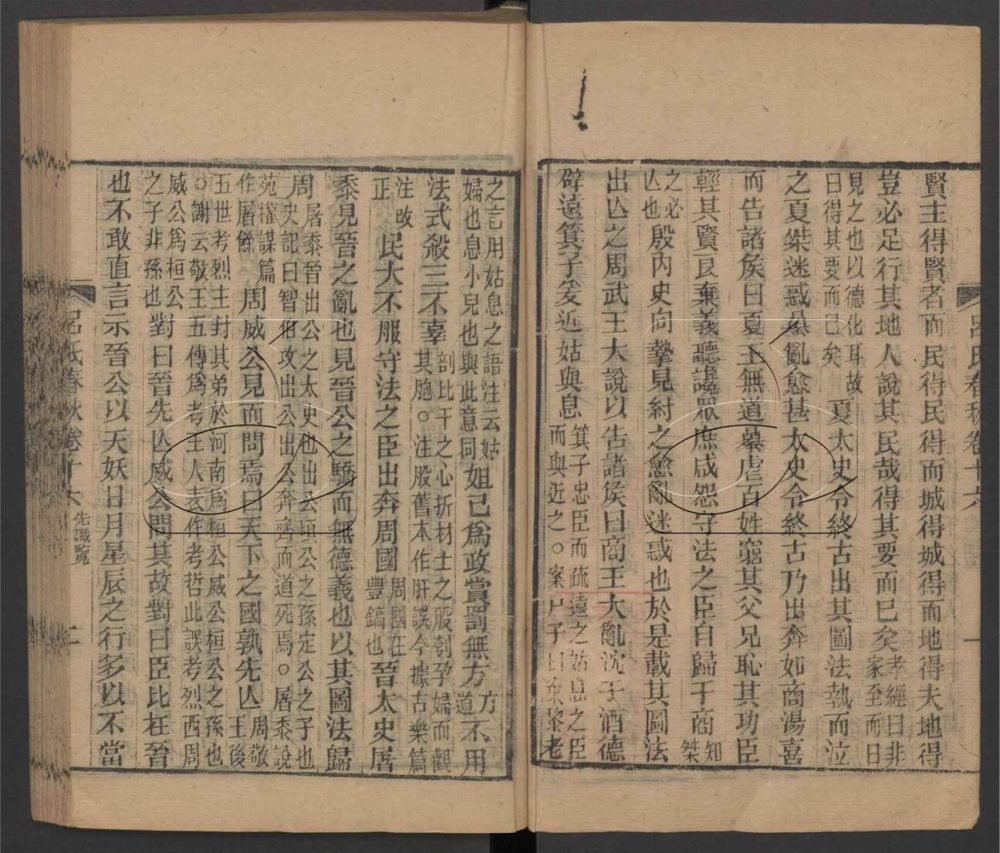 呂氏春秋卷十六
一
賢主得賢者而民得民得而城得城得而地得夫地得
豈必足行其地人說其民哉得其要而已矣孝經曰非家至而日
見之也以德化耳故曰得其要而已矣夏太史令終古出其圖法執而泣
之夏桀迷惑暴亂愈甚太史令終古乃出奔如商湯喜
而告諸矦曰夏王無道暴虐百姓窮其父兄恥其功臣
輕其賢良棄義聽讒眾庶咸怨守法之臣自歸于商知桀
之必亾也殷內史向摯見紂之愈亂迷惑也於是載其圖法
出亾之周武王大說以告諸矦曰商王大亂沈于酒德
辟遠箕子爰近姑與息箕子忠臣而疏遠之姑息之臣而與近之○案尸子曰棄黎老
之言用姑息之語注云姑婦也息小兒也與此意同妲己爲政賞罰無方方道不用
法式殺三不辜剖比干之心折材士之股刳孕婦而觀其胞○注股舊本作肝誤今據古樂篇
注改正民大不服守法之臣出奔周國周國在豐鎬也晉太史屠
黍見晉之亂也見晉公之驕而無德義也以其圖法歸
周屠黍晉出公之太史也出公頃公之孫定公之子也史記曰智伯攻出公出公奔齊而道死焉○屠黍說
苑權謀篇作屠餘周威公見而問焉曰天下之國孰先亾周敬王後
五世考烈王封其弟於河南爲桓公威公桓公之孫也○謝云敬王五傳爲考王人表作考哲此誤考烈西周
威公爲桓公之子非孫也對曰晉先亾威公問其故對曰臣比在晉
也不敢直言示晉公以天妖日月星辰之行多以不當
呂氏春秋卷十六 先識覽
二